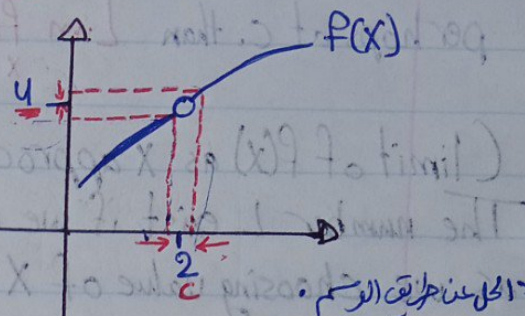 f(x)
4
2
c
الحل عن طريق الرسم .